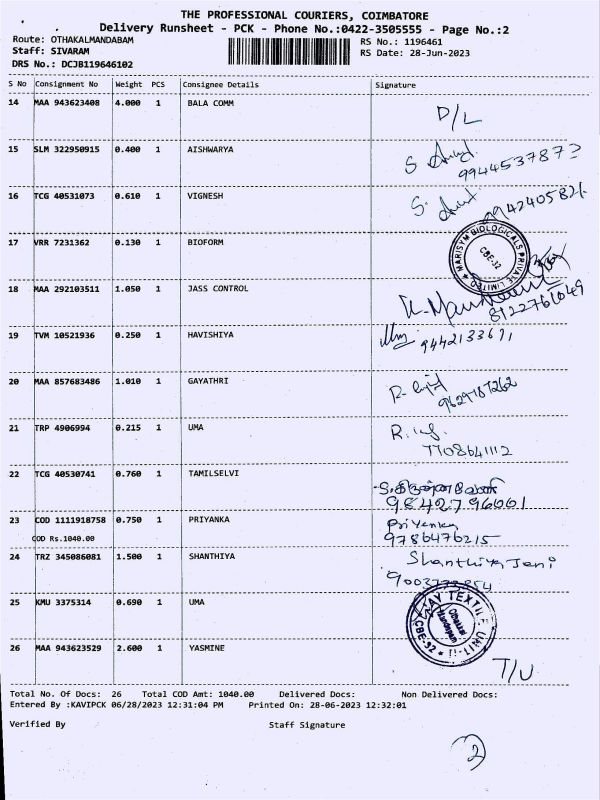 THE PROFESSIONAL COURIERS, COIMBATORE
Delivery Runsheet - PCK - Phone No.:0422-3505555 - Page No.:2
Route: OTHAKALMANDABAM RS No.: 1196461
Staff: SIVARAM RS Date: 28-Jun-2023
DRS No.: DCJB119646102
S No Consignment No Weight PCS Consignee Details Signature
14 MAA 943623408 4.000 1 BALA COMM D/L
15 SLM 322950915 0.400 1 AISHWARYA S
16 TCG 40531073 0.610 1 VIGNESH S.
17 VRR 7231362 0.130 1 BIOFORM MARISYM BIOLOGICALS PRIVATE LIMITED CBE-32
18 MAA 292103511 1.050 1 JASS CONTROL 8122761049
19 TVM 10521936 0.250 1 HAVISHIYA 9442133671
20 MAA 857683486 1.010 1 GAYATHRI R. 9629187262
21 TRP 4906994 0.215 1 UMA R. 7708641112
22 TCG 40530741 0.760 1 TAMILSELVI 9842796001
23 COD 1111918758 0.750 1 PRIYANKA Priyanka
COD Rs.1040.00 9786476215
24 TRZ 345086081 1.500 1 SHANTHIYA Shanthiya Jeni
25 KMU 3375314 0.690 1 UMA TEXTILE UNIT-II CBE-32
26 MAA 943623529 2.600 1 YASMINE T/U
Total No. Of Docs: 26 Total COD Amt: 1040.00 Delivered Docs: Non Delivered Docs:
Entered By :KAVIPCK 06/28/2023 12:31:04 PM Printed On: 28-06-2023 12:32:01
Verified By Staff Signature
2